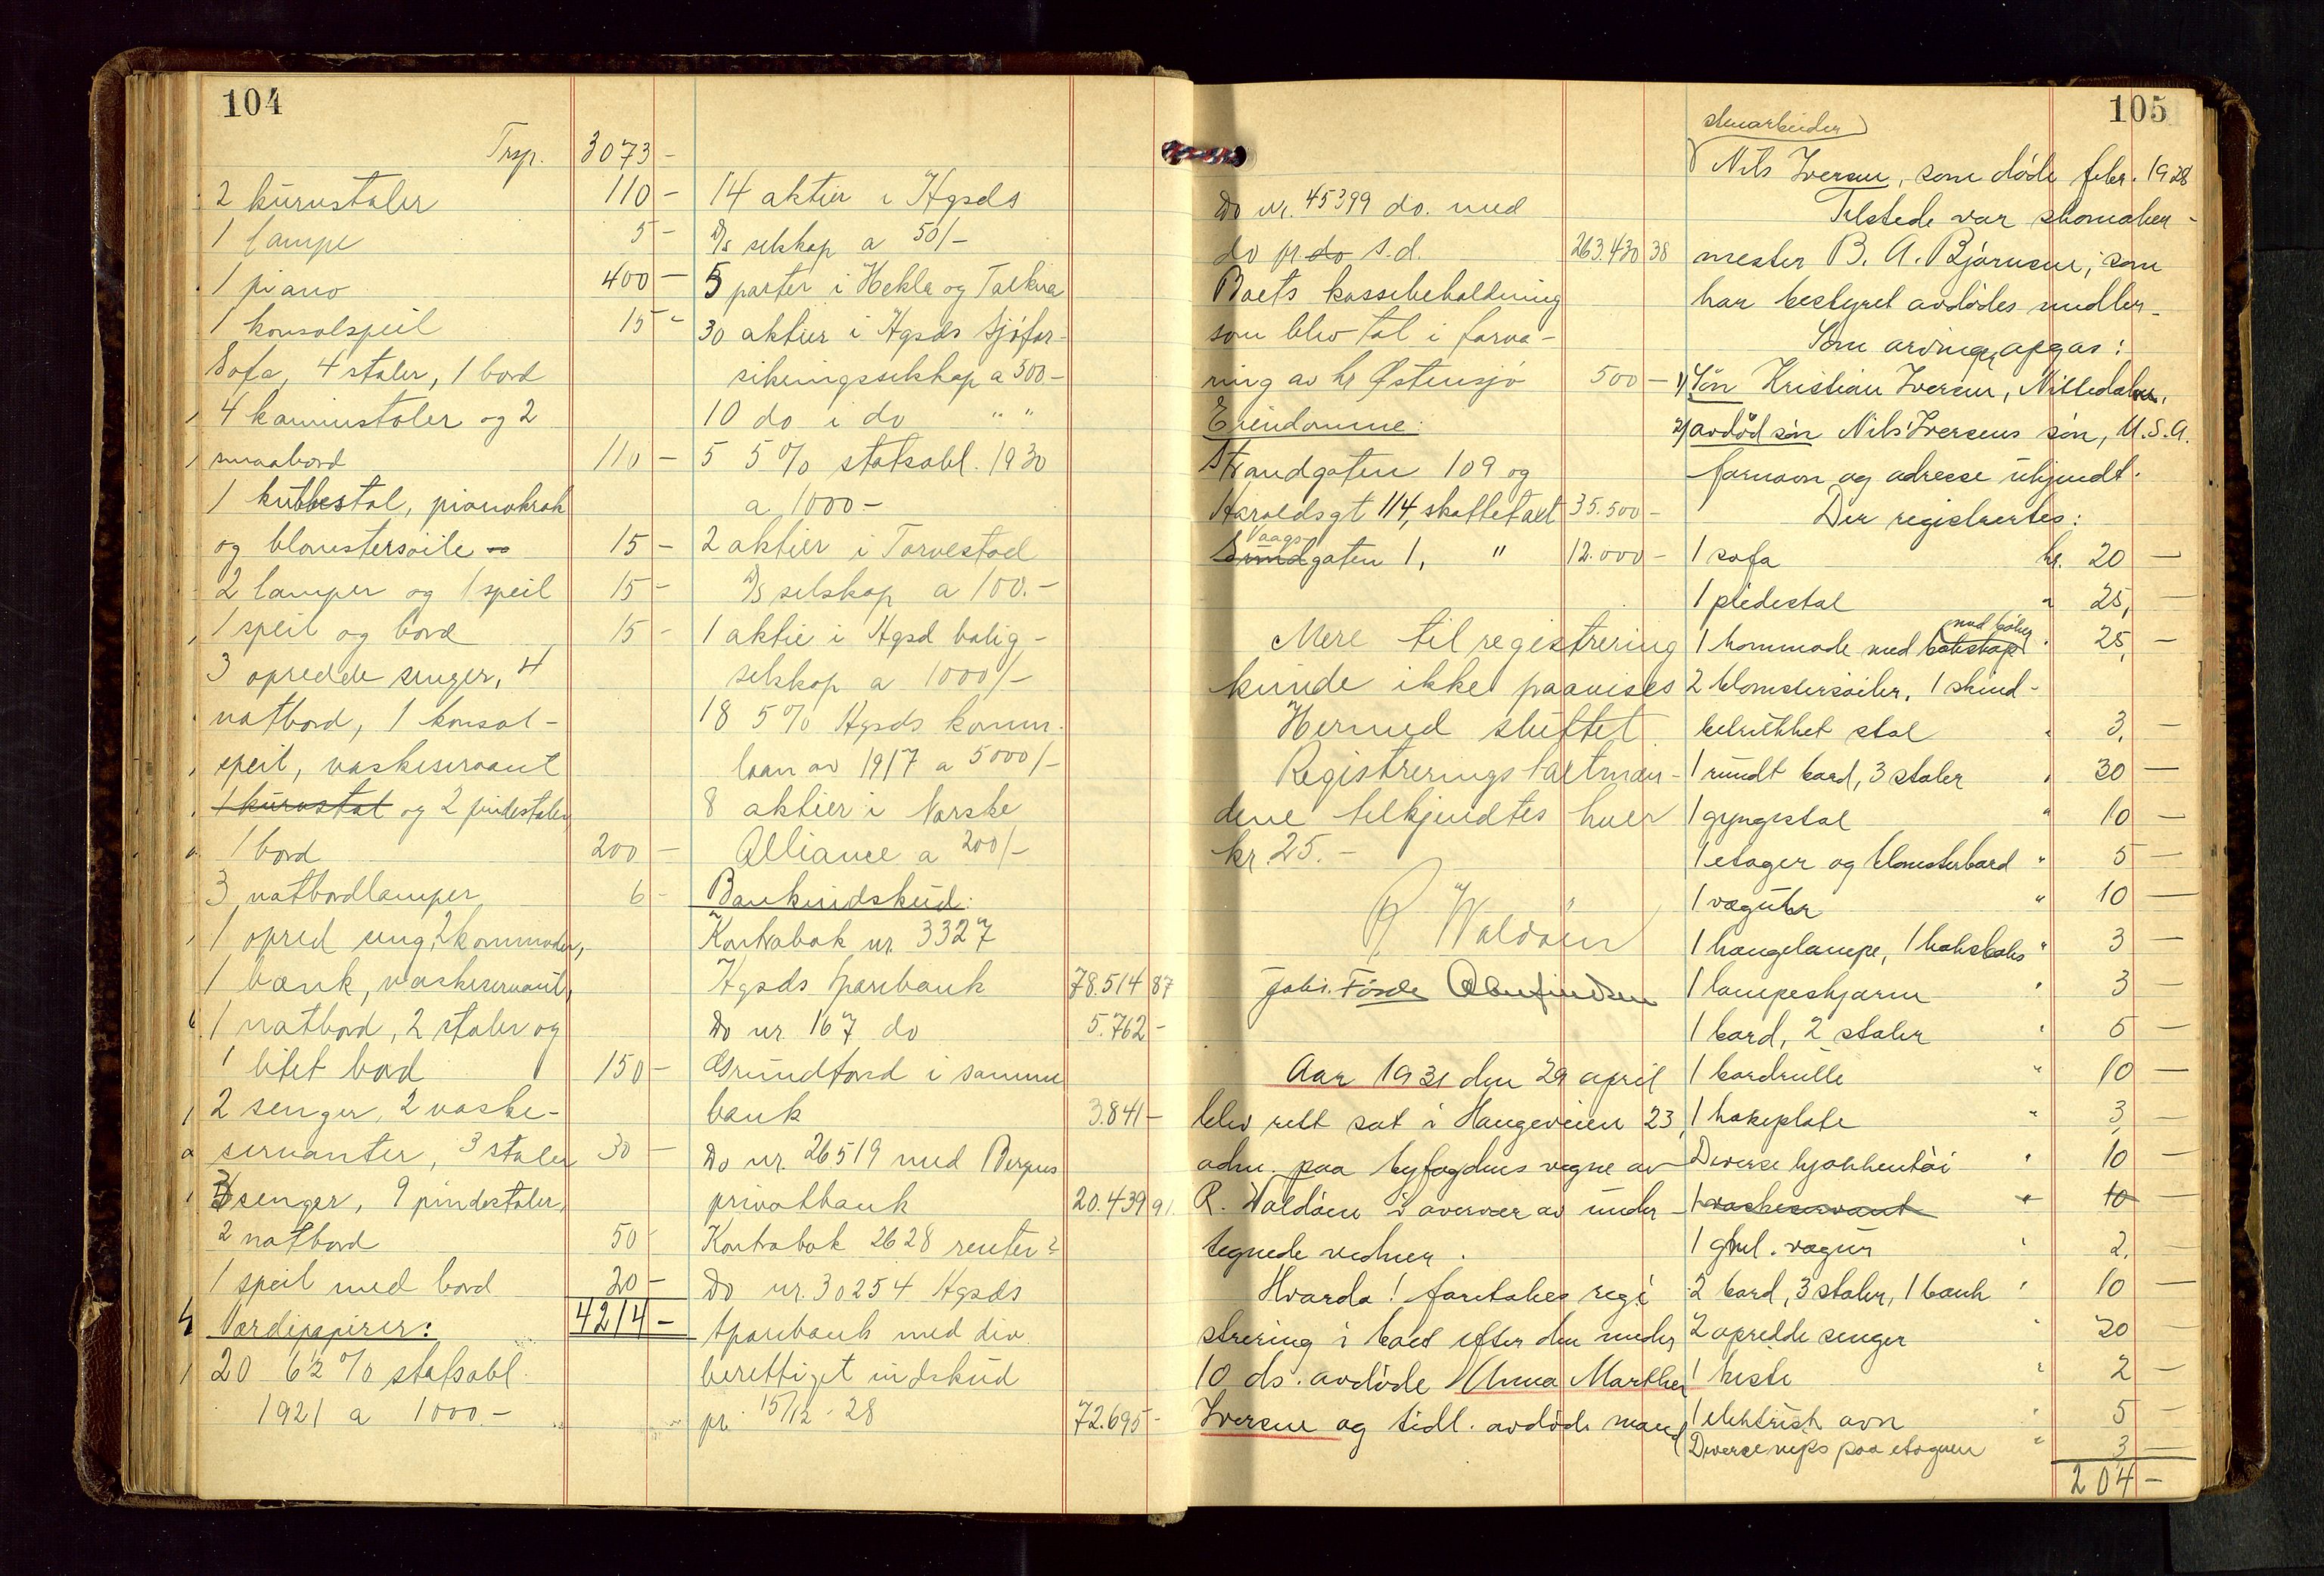 104
Trsp. 3073 -
2 kurvstoler 110 -
1 lampe 5 -
1 piano 400 -
1 konsolspeil 15 -
Sofa, 4 stoler, 1 bord
4 kaminstoler og 2
smaabord 110 -
1 kubbestol, pianokrak
og blomstersøile 15 -
2 lamper og 1 speil 15 -
1 speil og bord 15 -
3 opredde senger, 4
natbord, 1 konsol-
speil, vaskeservant
1 kurvstol og 2 pindestoler,
1 bord 200 -
3 natbordlamper 6 -
1 opred seng, 2 kommoder,
1 bænk, vaskeservant,
1 natbord, 2 stoler og
1 litet bord 150 -
2 senger, 2 vaske-
servanter, 3 stoler 30 -
3 senger, 9 pindestoler,
2 natbord 50 -
1 speil med bord 20 -
4214 -
Værdipapirer:
20 6½ % statsobl.
1921 a 1000.-
14 aktier i Hgsds
D/s selskap a 50/-
5 parter i Hekla og Talkna
30 aktier i Hgsds Sjøfor-
sikringsselskap a 500-
10 do i do " "
5 5% statsobl. 1930
a 1000-
2 aktier i Torvestad
D/s selskap a 100.-
1 aktie i Hgsd bolig-
selskap a 1000/-
18 5% Hgsds komm.
laan av 1917 a 5000/-
8 aktier i Norske
Alliance a 200/-
Bankindskud:
Kontrabok nr. 3327
Hgsds Sparebank 78.514 87
Do nr. 167 do 5.762 -
Grundfond i samme
bank 3.841 -
Do nr. 26519 med Bergens
privatbank 20.439 91
Kontrabok 2628 renter?
Do nr. 30254 Hgsds
Sparebank med div.
berettiget indskud
pr. 15/12-28 72.695 -
105
Do nr. 45399 do. med
do pr. do s.d. 263.430 38
Boets kassebeholdning
som blev tat i forva-
ring av hr Østensjø 500 -
Eiendomme:
Strandgaten 109 og
Haraldsgt 114, skattetakt 35.500 -
Vaags
Sundgaten 1, " 12.000 -
Mere til registrering
kunde ikke paavises
Hermed sluttet.
Registrerings takstmæn-
dene tilkjendtes hver
kr. 25.-
R Waldøen
Johs. Førde
Aar 1931 den 29 april
blev rett sat i Haugeveien 23,
adm. paa byfogdens vegne av
R. Waldøen i overvær av under-
tegnede vidner.
Hvorda! foretokes regi
strering i boet efter den under
10 ds. avdøde Anna Marthe
Iversen og tidl. avdøde mand
stenarbeider
Nils Iversen, som døde febr. 1928
Tilstede var skomaker-
mester B. A. Bjørnsen, som
har bestyret avdødes midler.
Som arvinger opgas:
1) Søn Kristian Iversen, Nittedalen,
2) avdød søn Nils Iversens søn, U.S.A.
fornavn og adresse ukjendt.
Der registrertes:
1 sofa kr. 20 -
1 piedestal " 25, -
med bøker
1 kommode med bokskap " 25, -
2 blomstersøiler, 1 skind-
betrukket stol " 3, -
1 rundt bord, 3 stoler " 30 -
1 gyngestol " 10 -
1 etager og blomsterbord " 5 -
1 væguhr " 10 -
1 hængelampe, 1 kokskoks " 3 -
1 lampeskjærm " 3 -
1 bord, 2 stoler " 5 -
1 bordrulle " 10 -
1 kokeplate " 3, -
Diverse kjøkkentøi " 10 -
1 vaskeservant " 10 -
1 gml. vægur " 2. -
2 bord, 3 stoler, 1 bænk " 10 -
2 opredde senger " 20 -
1 kiste " 2 -
1 elektrisk ovn " 5 -
Diverse nips paa etageren " 3 -
204 -